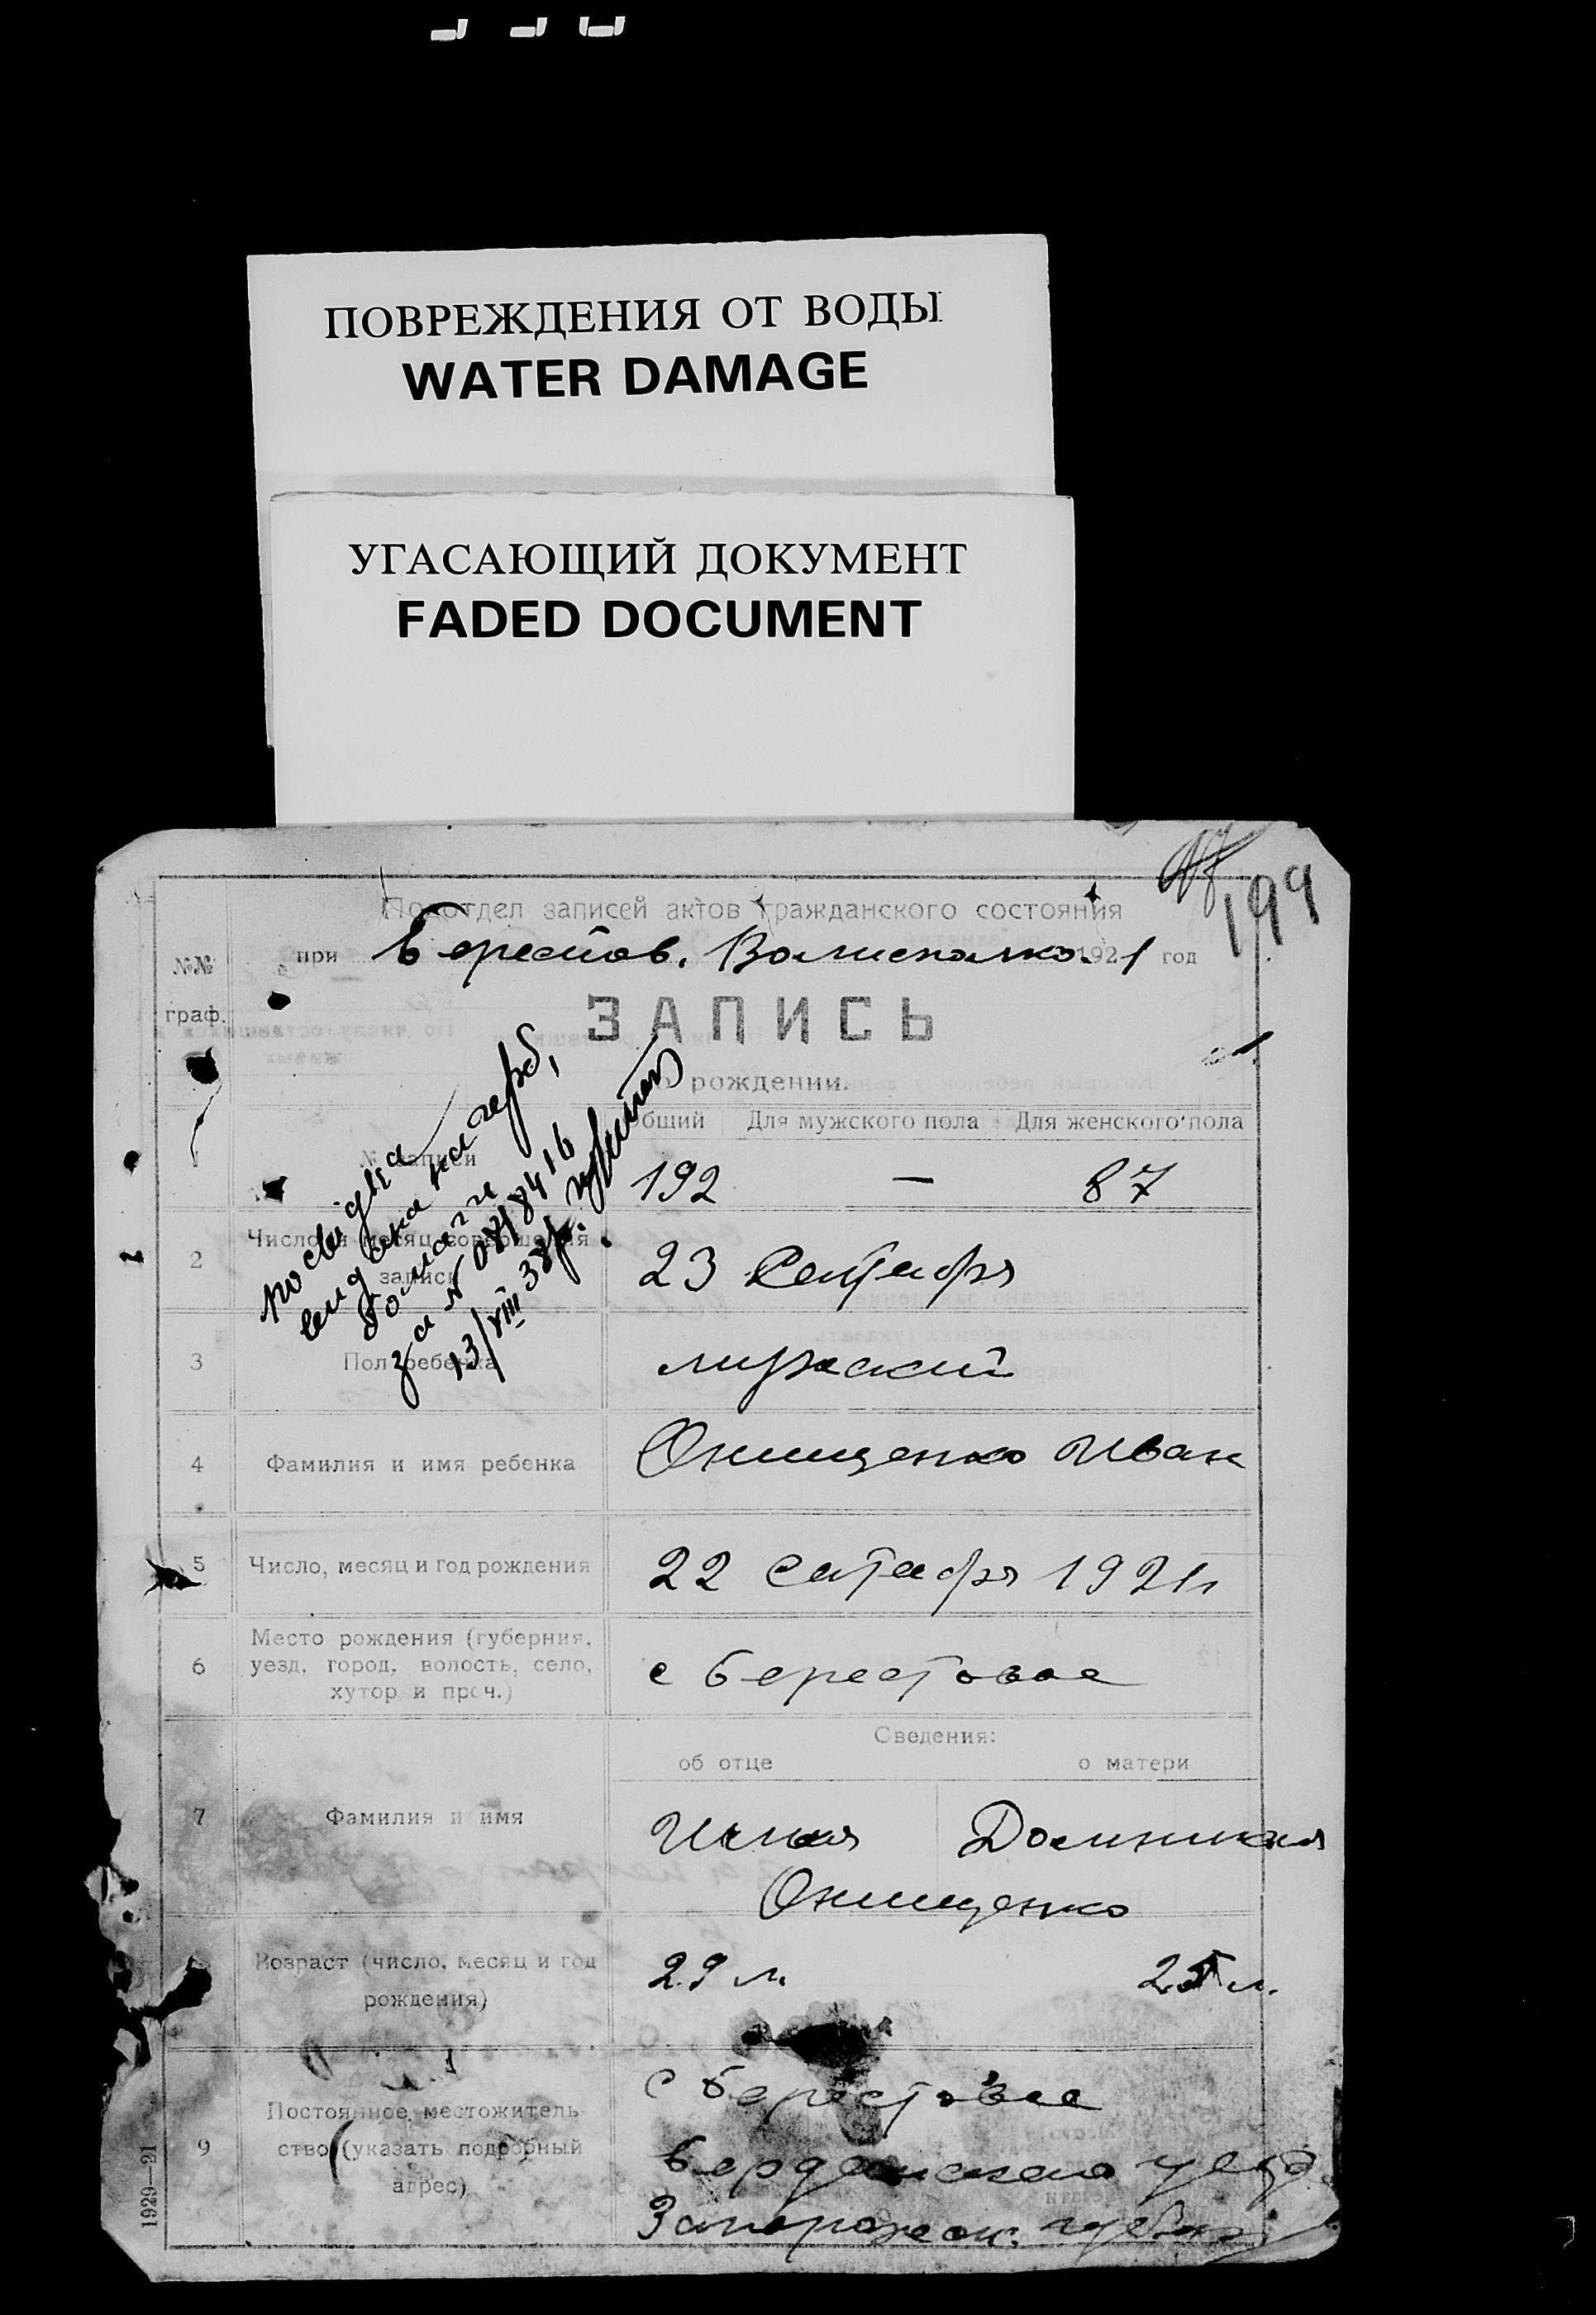 ПОВРЕЖДЕНИЯ ОТ ВОДЫ
WATER DAMAGE
УГАСАЮЩИЙ ДОКУМЕНТ
FADED DOCUMENT
199
Подотдел записей актов гражданского состояния
№№ граф.
при Берестов. Волисполко. 1921 год
ЗАПИСЬ
о рождении.
Общий Для мужского пола Для женского пола
1 № записи 192 — 87
2 Число и месяц совершения записи 23 Сентября
3 Пол ребенка мужеский
4 Фамилия и имя ребенка Онищенко Иван
5 Число, месяц и год рождения 22 сентября 1921
6 Место рождения (губерния,
уезд, город, волость, село,
хутор и проч.)
с Берестовое
Сведения:
об отце о матери
7 Фамилия и имя
Доминикия
Онищенко
9 Возраст (число, месяц и год
рождения)
29 л. 25 л.
9 Постоянное местожитель-
ство (указать подробный
адрес)
с Берестовое
Бердянского уезд.
Запорожск. губерн
1920—21
посвідка
видана на герб,
бомагі
за № 0818416
13/VIII 38р.